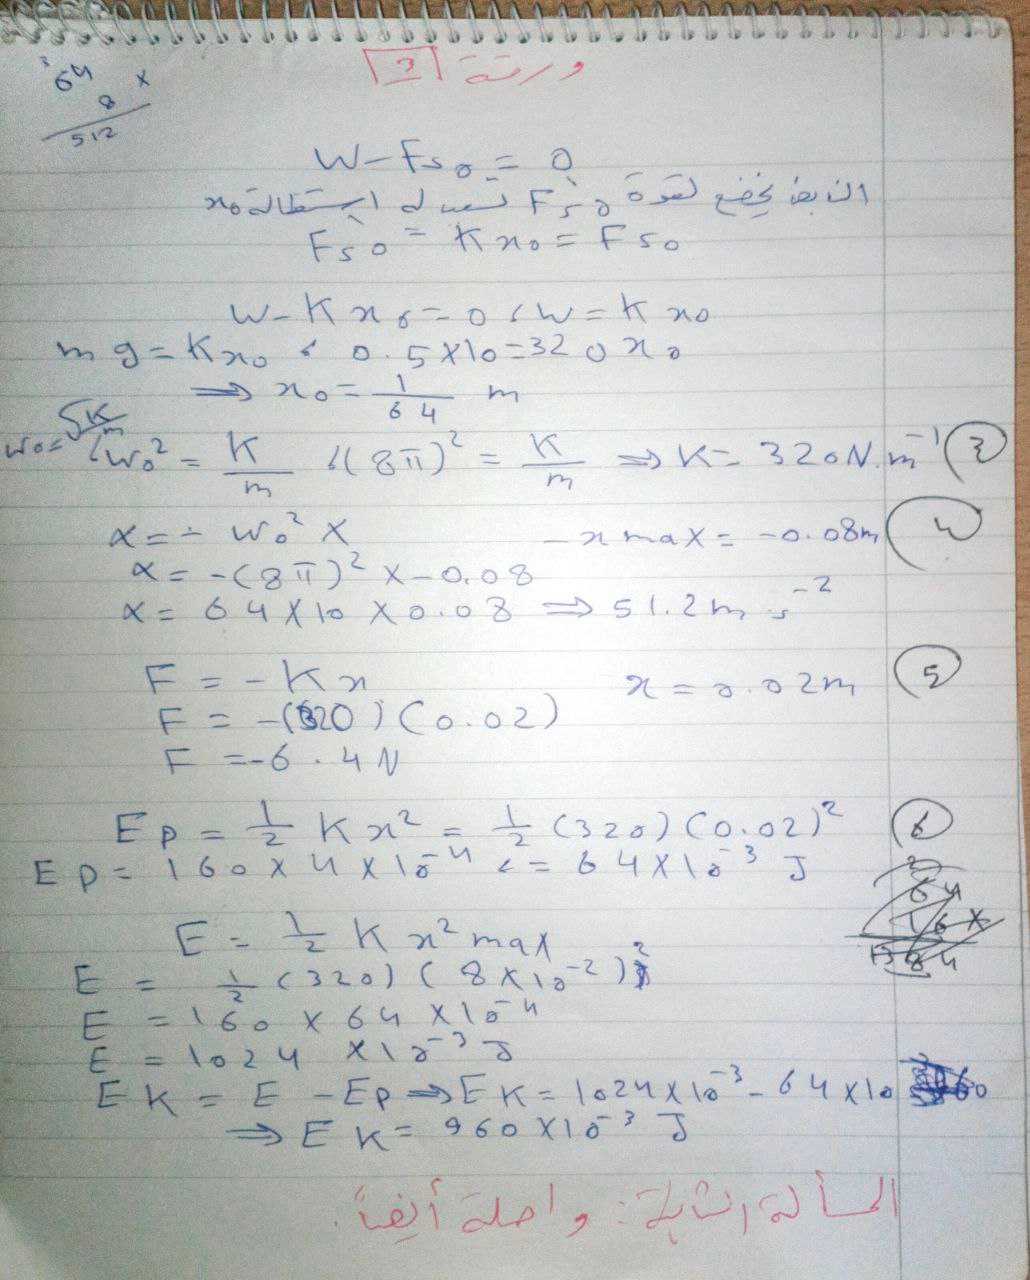 ورقة 3
64
8 ×
512
W - Fs₀ = 0
النابض يخضع لقوة Fs₀ تسبب له استطالة x₀
Fs₀ = K x₀ = Fs₀
W - K x₀ = 0 ، W = K x₀
m g = K x₀ ، 0.5 × 10 = 320 x₀
⇒ x₀ = 1/64 m
W₀ = √(K/m) ، W₀² = K/m ، (8π)² = K/m ⇒ K = 320 N.m⁻¹ 3
α = - W₀² X - x max = -0.08m 4
α = -(8π)² × -0.08
α = 64 × 10 × 0.08 ⇒ 51.2 m s⁻²
F = - K x x = 0.02m 5
F = -(320) (0.02)
F = -6.4 N
Ep = 1/2 K x² = 1/2 (320) (0.02)² 6
Ep = 160 × 4 × 10⁻⁴ ، = 64 × 10⁻³ J
E = 1/2 K x² max
E = 1/2 (320) (8 × 10⁻²)²
E = 160 × 64 × 10⁻⁴
E = 1024 × 10⁻³ J
EK = E - Ep ⇒ EK = 1024 × 10⁻³ - 64 × 10
⇒ EK = 960 × 10⁻³ J
المسألة الثانية: واصلة أيضاً.